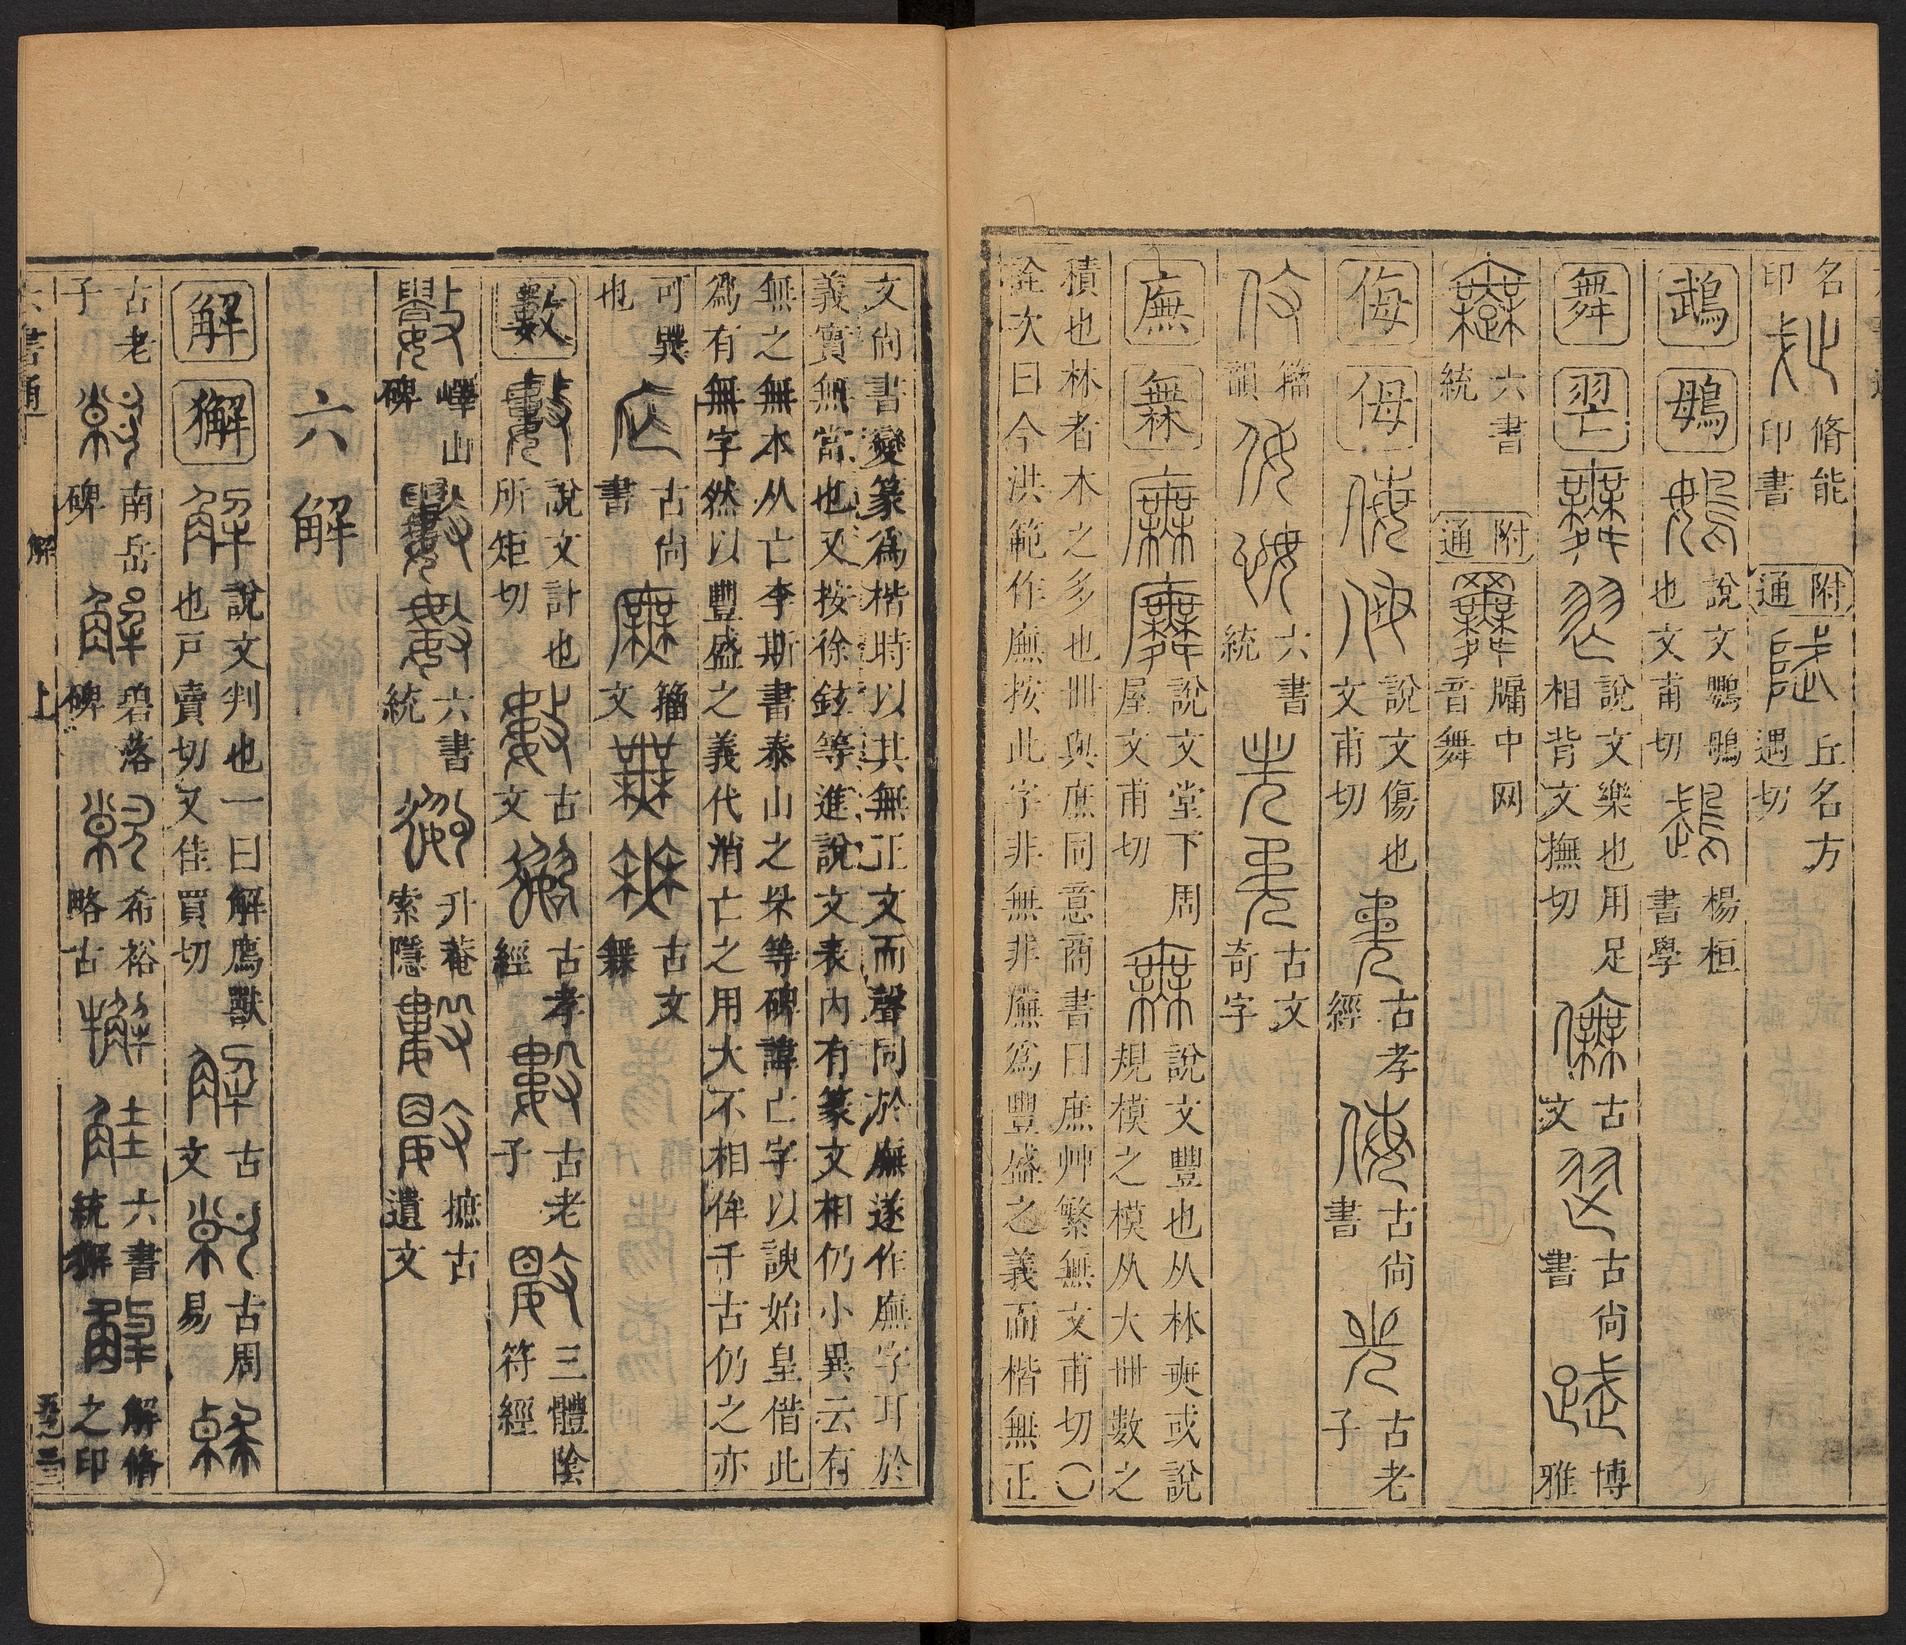 名印 脩能印書 附通 丘名方遇切
鵡 䳇 說文鸚䳇也文甫切 楊桓書學
舞 𦏶 說文樂也用足相背文撫切 古文 古尚書 博雅
六書統 附通 牖中网音舞
侮 㑄 說文傷也文甫切 古孝經 古尚書 古老子
籀韻 六書統 古文奇字
廡 橆 說文堂下周屋文甫切 說文豐也从林奭或說規模之模从大卌數之
積也林者木之多也卌與庶同意商書曰庶艸繁橆文甫切〇
次曰今洪範作廡按此字非無非廡為豐盛之義而楷無正
文尚書變篆為楷時以其無正文而聲同於廡遂作廡字耳於
義實無當也又按徐鉉等進說文表內有篆文相仍小異云有
無之無本从亡李斯書泰山之杲等碑諱亡字以諛始皇借此
為有無字然以豐盛之義代消亡之用大不相侔千古仍之亦
可異也 古尚書 籀文 古文橆
數 說文計也所矩切 古文 古孝經 古老子 三體陰符經
嶧山碑 六書統 升菴索隱 摭古遺文
六解
解 獬 說文判也一曰解廌獸也戶賣切又佳買切 古文 古周易
古老子 南岳碑 碧落碑 希裕略古 六書統獬 解脩之印
六書通 解 上